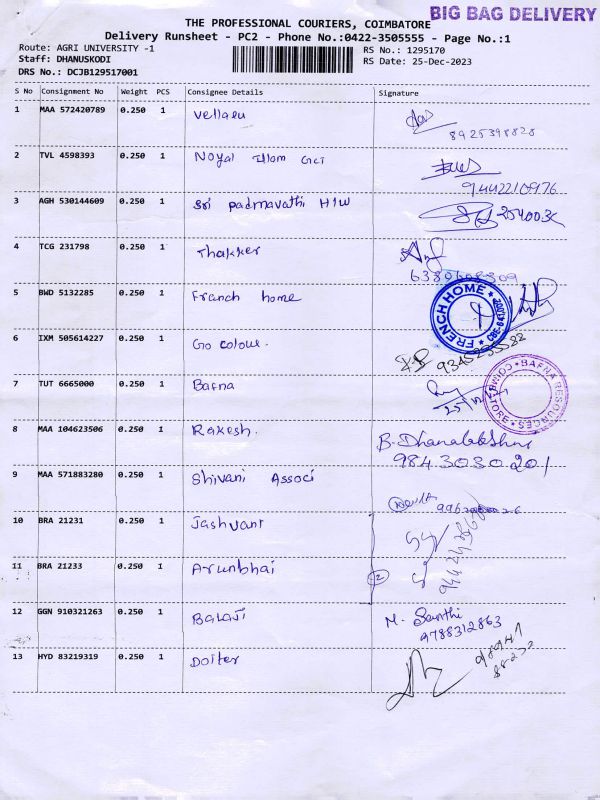 BIG BAG DELIVERY
THE PROFESSIONAL COURIERS, COIMBATORE
Delivery Runsheet - PC2 - Phone No.:0422-3505555 - Page No.:1
Route: AGRI UNIVERSITY -1 RS No.: 1295170
Staff: DHANUSKODI RS Date: 25-Dec-2023
DRS No.: DCJB129517001
S No Consignment No Weight PCS Consignee Details Signature
1 MAA 572420789 0.250 1 Vellaeu
8925398828
2 TVL 4598393 0.250 1 Noyal
9442210976
3 AGH 530144609 0.250 1 Sri padmavathi H/W
4 TCG 231798 0.250 1 Thakker
5 BWD 5132285 0.250 1 Franch home
FRENCH HOME
6 IXM 505614227 0.250 1 Go colour.
7 TUT 6665000 0.250 1 Bafna
BAFNA RESOURCES COIMBATORE
8 MAA 104623506 0.250 1 Rakesh.
B. Dhanalakshmi
9843030201
9 MAA 571883280 0.250 1 Shivani Associ
10 BRA 21231 0.250 1 Jashvant
11 BRA 21233 0.250 1 Arunbhai
2
12 GGN 910321263 0.250 1 Balaji
M. Santhi
9788312863
13 HYD 83219319 0.250 1 Doiter